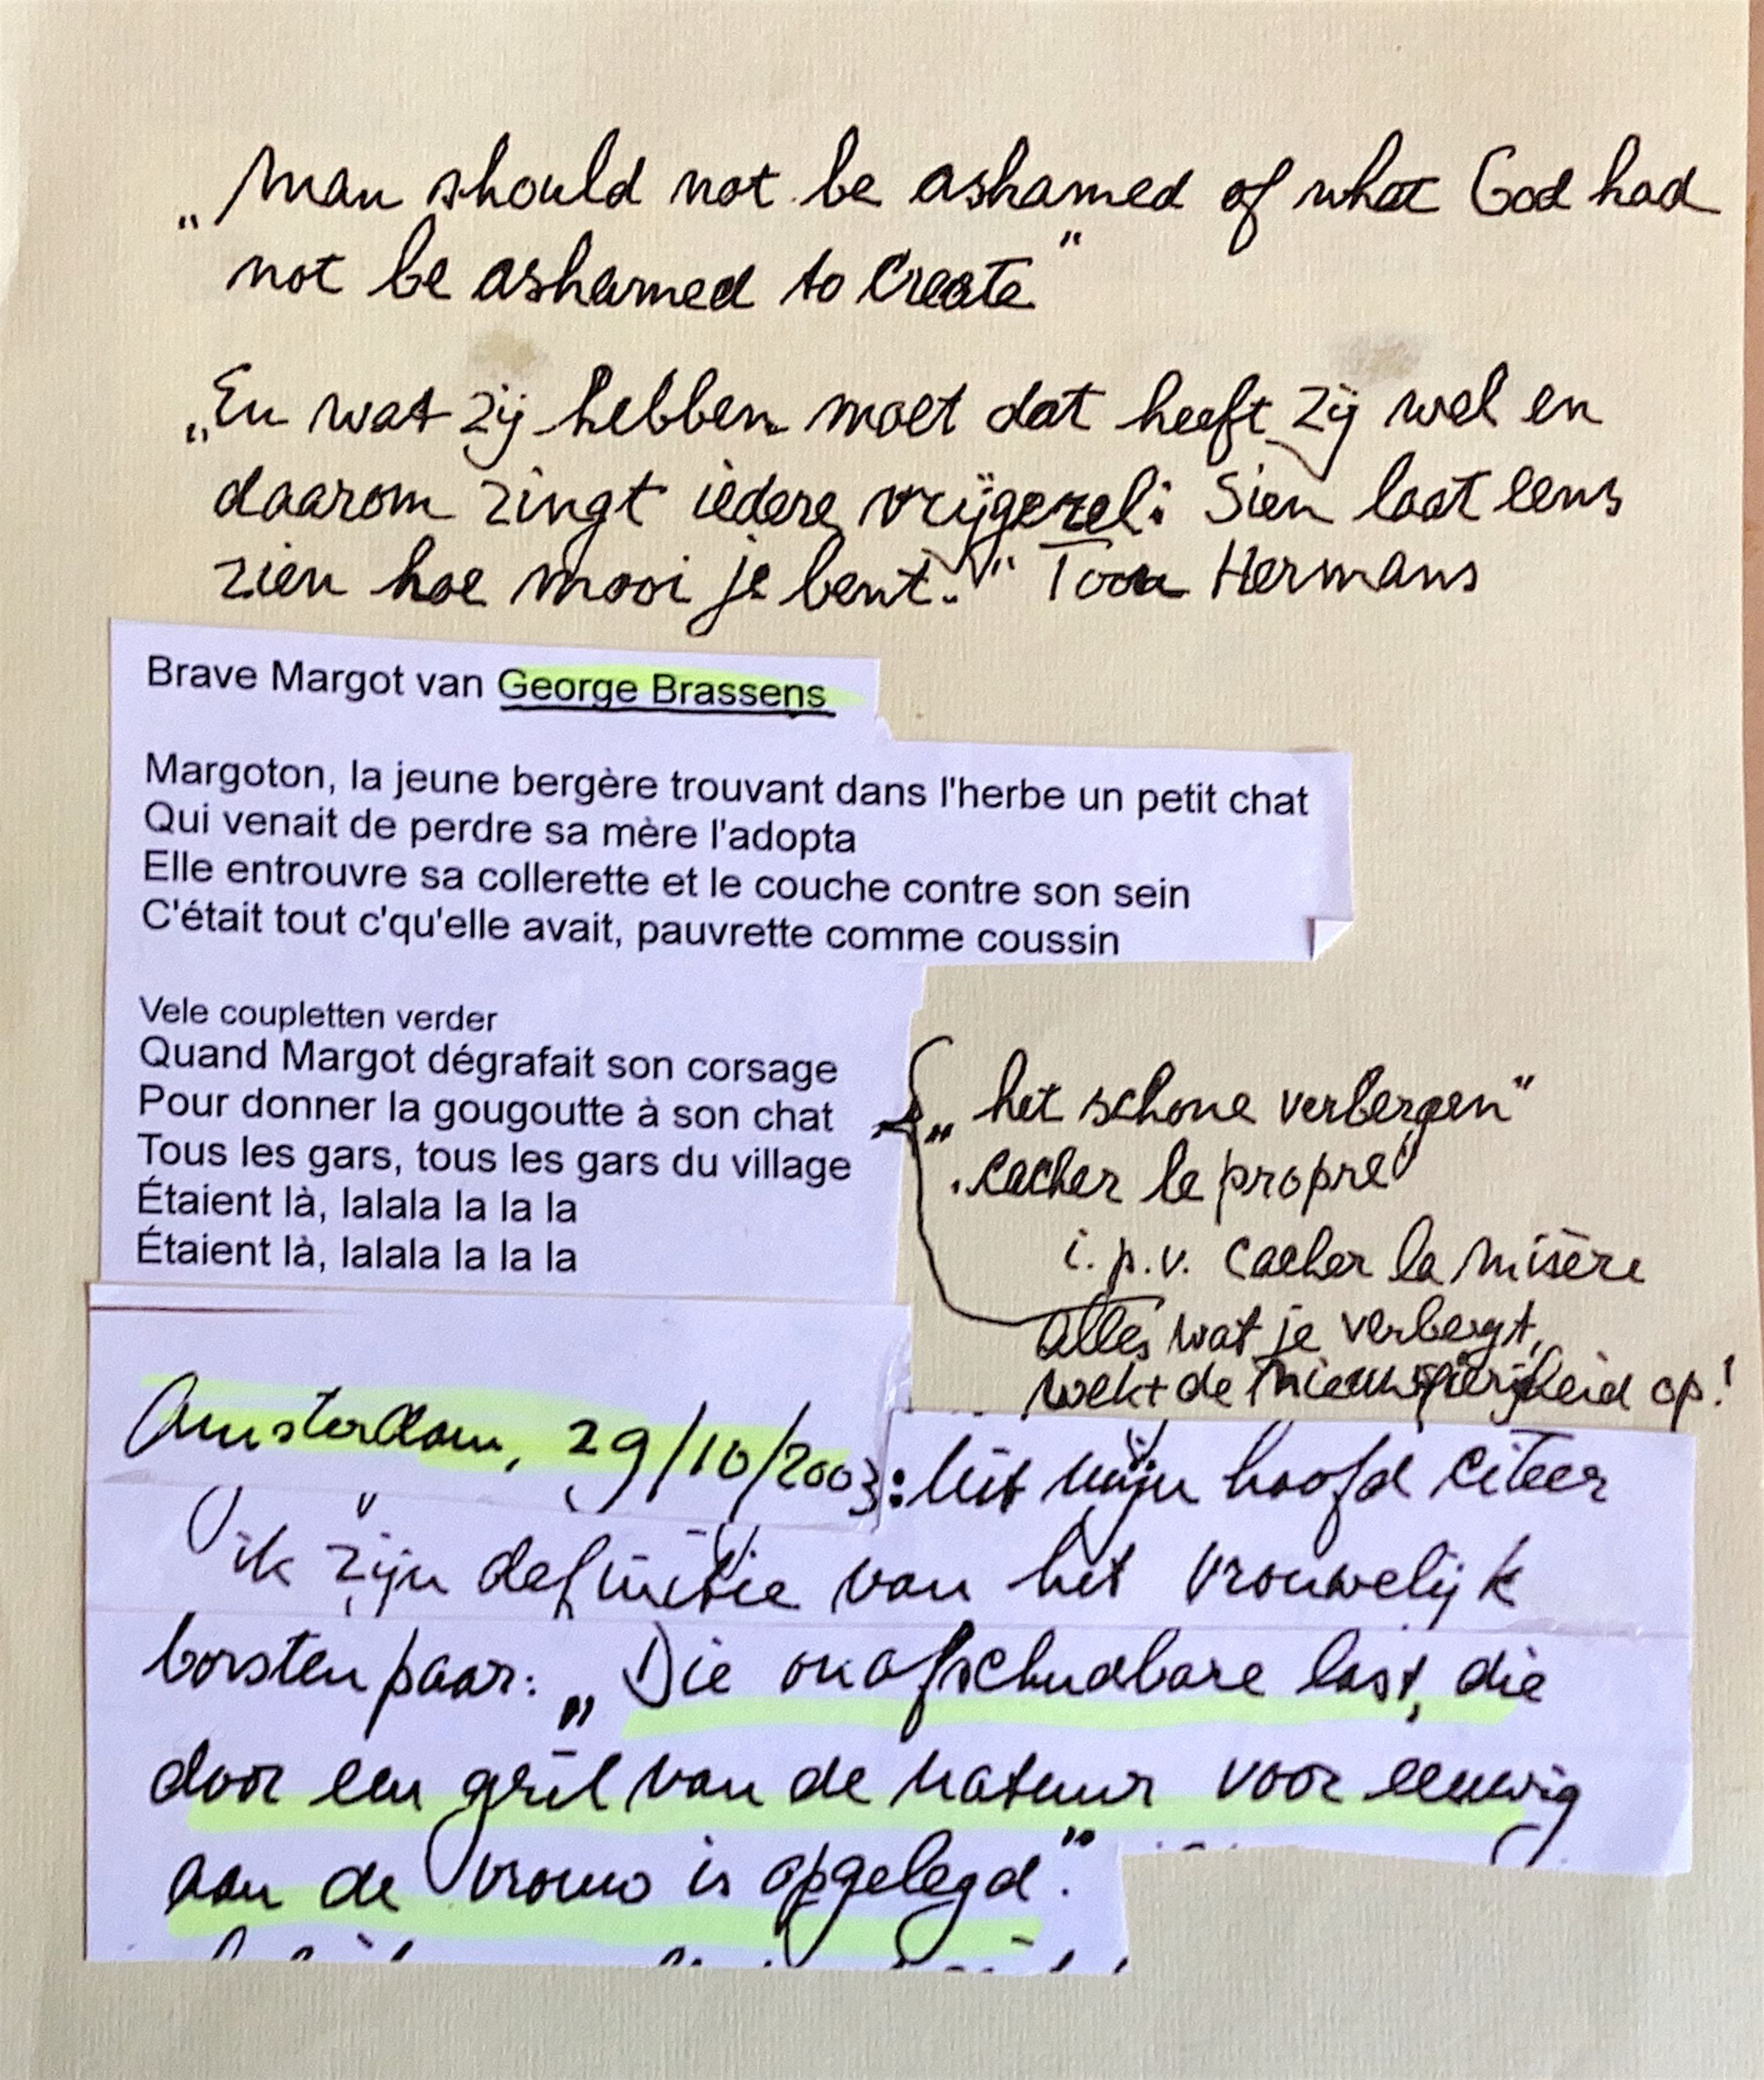 „Man should not be ashamed of what God had
not be ashamed to create"
„En wat zij hebben moet dat heeft zij wel en
daarom zingt iedere vrijgezel: Sien laat eens
zien hoe mooi je bent." Toon Hermans
Brave Margot van George Brassens
Margoton, la jeune bergère trouvant dans l'herbe un petit chat
Qui venait de perdre sa mère l'adopta
Elle entrouvre sa collerette et le couche contre son sein
C'était tout c'qu'elle avait, pauvrette comme coussin
Vele coupletten verder
Quand Margot dégrafait son corsage
Pour donner la gougoutte à son chat
Tous les gars, tous les gars du village
Étaient là, lalala la la la
Étaient là, lalala la la la
„het schone verbergen"
cacher le propre
i.p.v. cacher la misère
alles wat je verbergt,
wekt de nieuwsgierigheid op!
Amsterdam, 29/10/2003: Uit mijn hoofd citeer
ik zijn definitie van het vrouwelijk
borstenpaar: „Die onafschudbare last, die
door een gril van de natuur voor eeuwig
aan de vrouw is opgelegd".